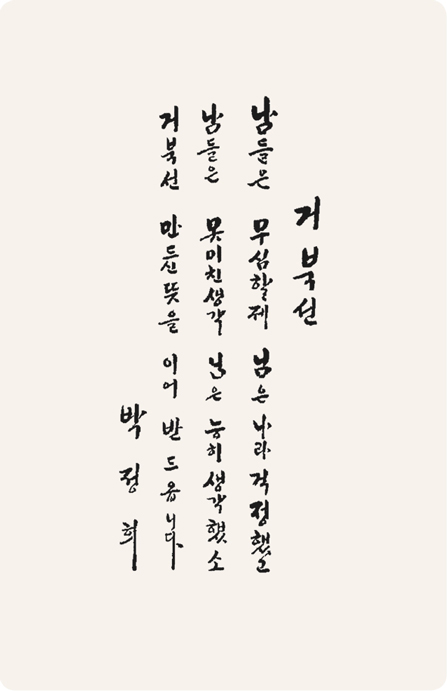 거북선
남들은 무심할제 님은 나라 걱정했고
남들은 못미친생각 님은 능히 생각했소
거북선 만든뜻을 이어 받드옵니다
박정희